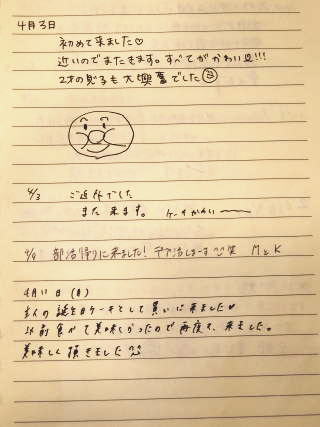 4月3日
初めて来ました♡
近いのでまたきます。すべてがかわいい!!!
2才の息子も大興奮でした
4/3 ご近所でした
また来ます。 ケーキかわいい〜
4/4 部活帰りに来ました! デブ活しまーす 笑 MとK
4月11日
主人の誕生日ケーキとして買いに来ました♥
以前食べて美味しかったので再度、来ました。
美味しく頂きました